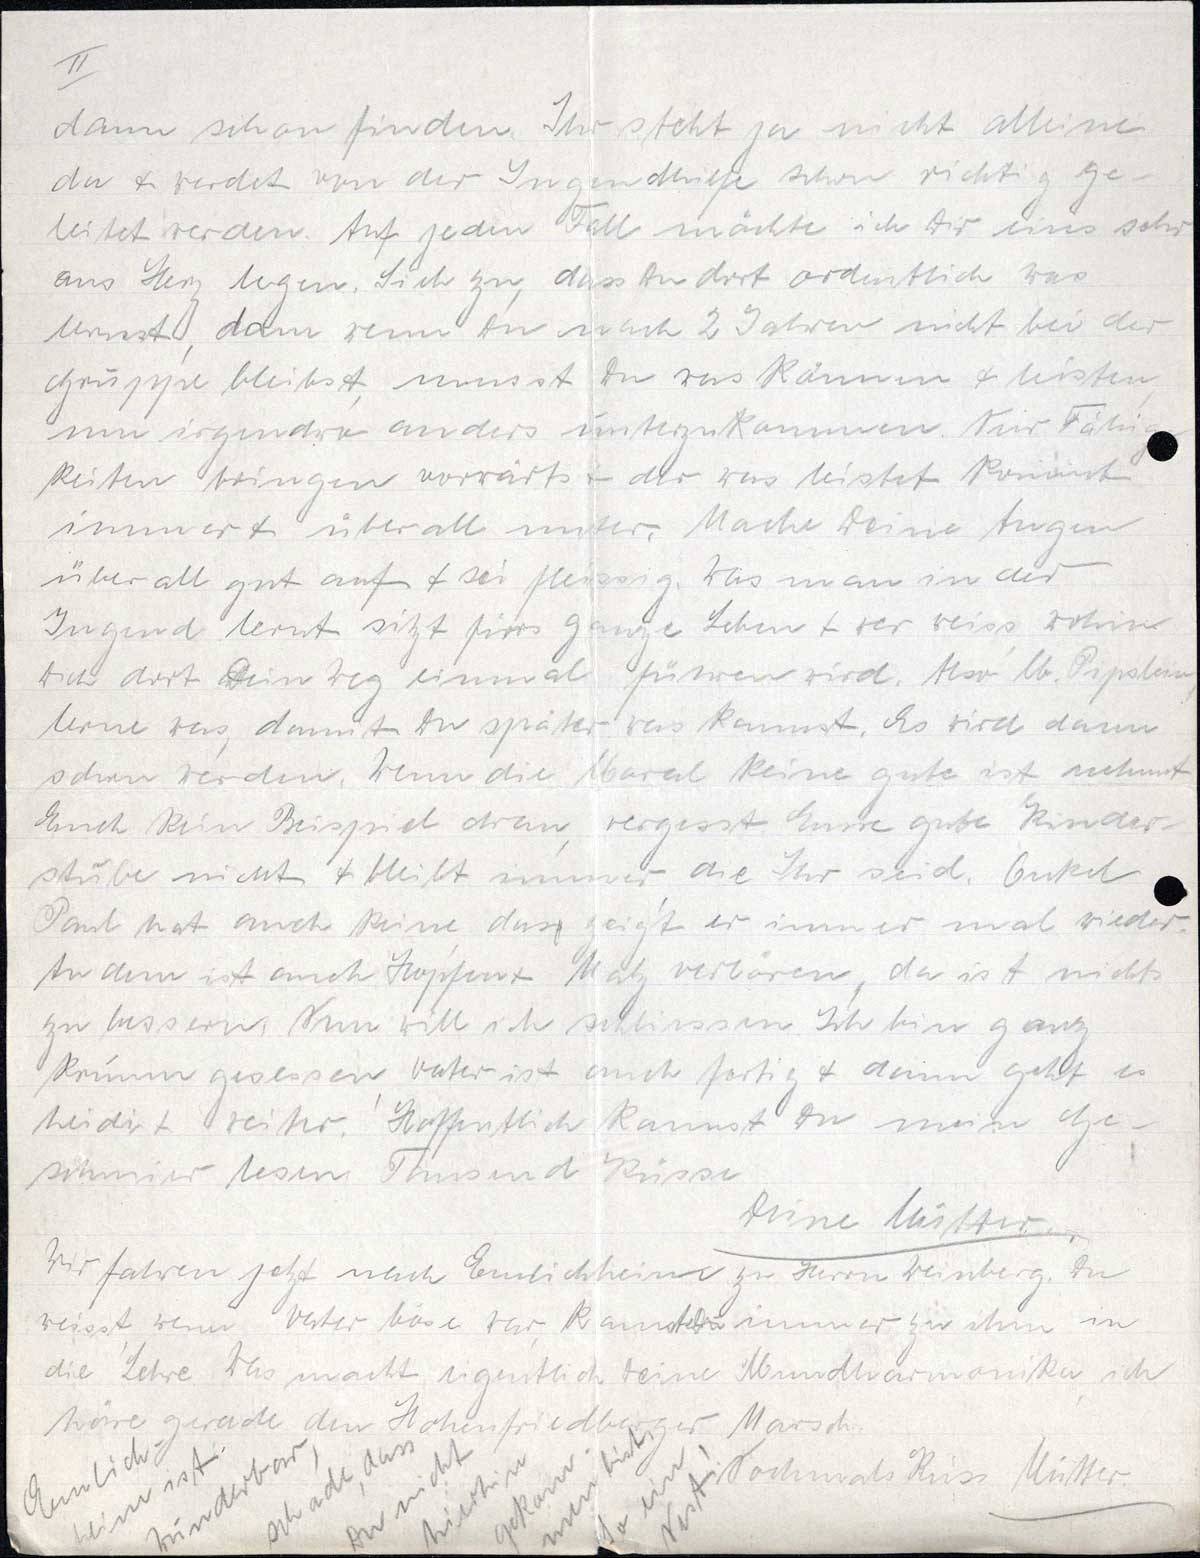 II
dann schon finden. Ihr steht ja nicht alleine
da & werdet von der Jugendhilfe schon richtig ge-
leitet werden. Auf jeden Fall möchte ich Dir eins sehr
ans Herz legen. Sieh zu, dass Du dort ordentlich was
lernst, denn wenn Du nach 2 Jahren nicht bei der
Gruppe bleibst, musst Du was können & leisten,
um irgendwo anders unterzukommen. Nur Fähig
keiten bringen vorwärts & der was leistet kommt
immer & überall unter. Mache Deine Augen
überall gut auf & sei fleissig. Was man in der
Jugend lernt sitzt fürs ganze Leben & wer weiss, wohin
Dich dort Dein Weg einmal führen wird. Also lb. Pipslein,
lerne was, damit Du später was kannst. Es wird dann
schon werden. Wenn die Moral keine gute ist nehmt
Euch kein Beispiel dran, vergesst Eure gute Kinder-
stube nicht & bleibt immer die Ihr seid. Onkel
Paul hat auch keine das zeigt er immer mal wieder.
An dem ist auch Hopfen & Malz verloren, da ist nichts
zu bessern. Nun will ich schliessen. Ich bin ganz
krumm gesessen Vater ist auch fertig & dann geht es
heidi & weiter. Hoffentlich kannst Du mein Ge-
schmier lesen. Tausend Küsse
Deine Mutter.
Wir fahren jetzt nach Emlichheim zu Herrn Weinberg. Du
weisst, wenn Vater böse war, kamst Du immer zu ihm in
die Lehre. Was macht eigentlich Deine Mundharmonika, ich
höre gerade den Hohenfriedberger Marsch.
Nochmals Kuss Mutter.
Emlich-
heim ist
wunderbar,
schade, dass
Du nicht
hierhin
gekom-
men bist.
So ein
Nest!